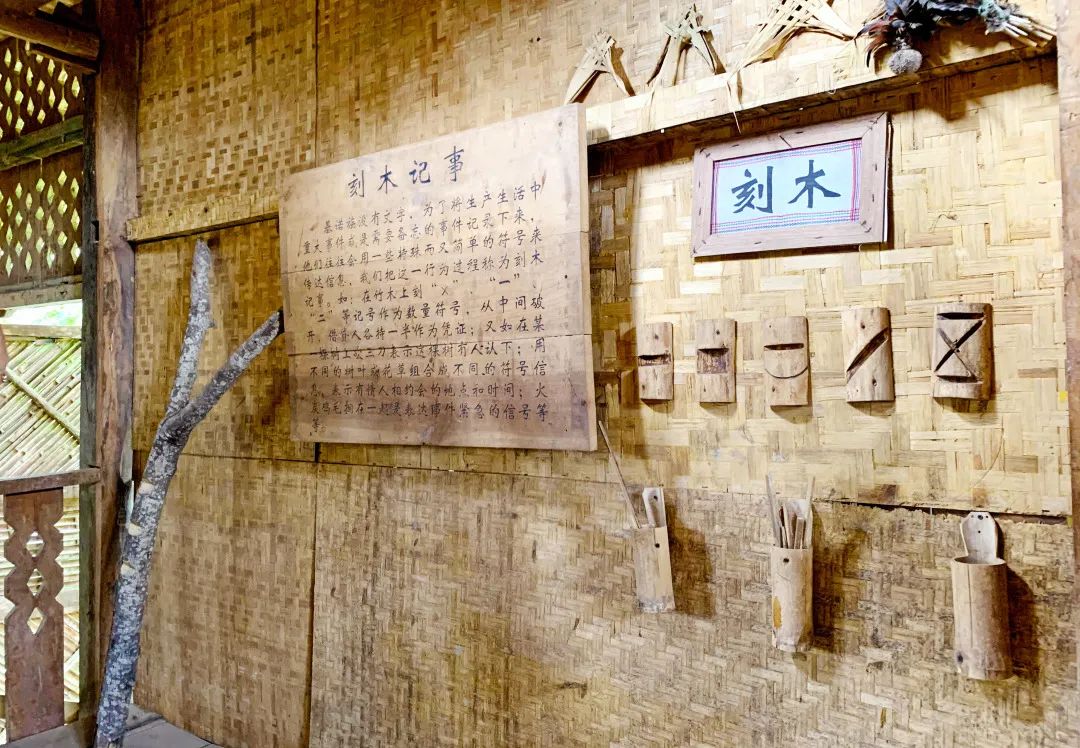 刻木记事
基诺族没有文字，为了将生产生活中
重大事件或是需要备忘的事件记录下来，
他们往往会用一些特殊而又简单的符号来
传达信息，我们把这一行为过程称为刻木
记事。如：在竹木上刻“×”、“一”、
“二”等记号作为数量符号，从中间破
开，借贷人各持一半作为凭证；又如在某
棵树上砍三刀表示这棵树有人认下；用
不同的树叶或花草组合成不同的符号信
息，表示有情人相约会的地点和时间；火
炭鸡毛捆在一起是表达事件紧急的信号等
等。
刻木